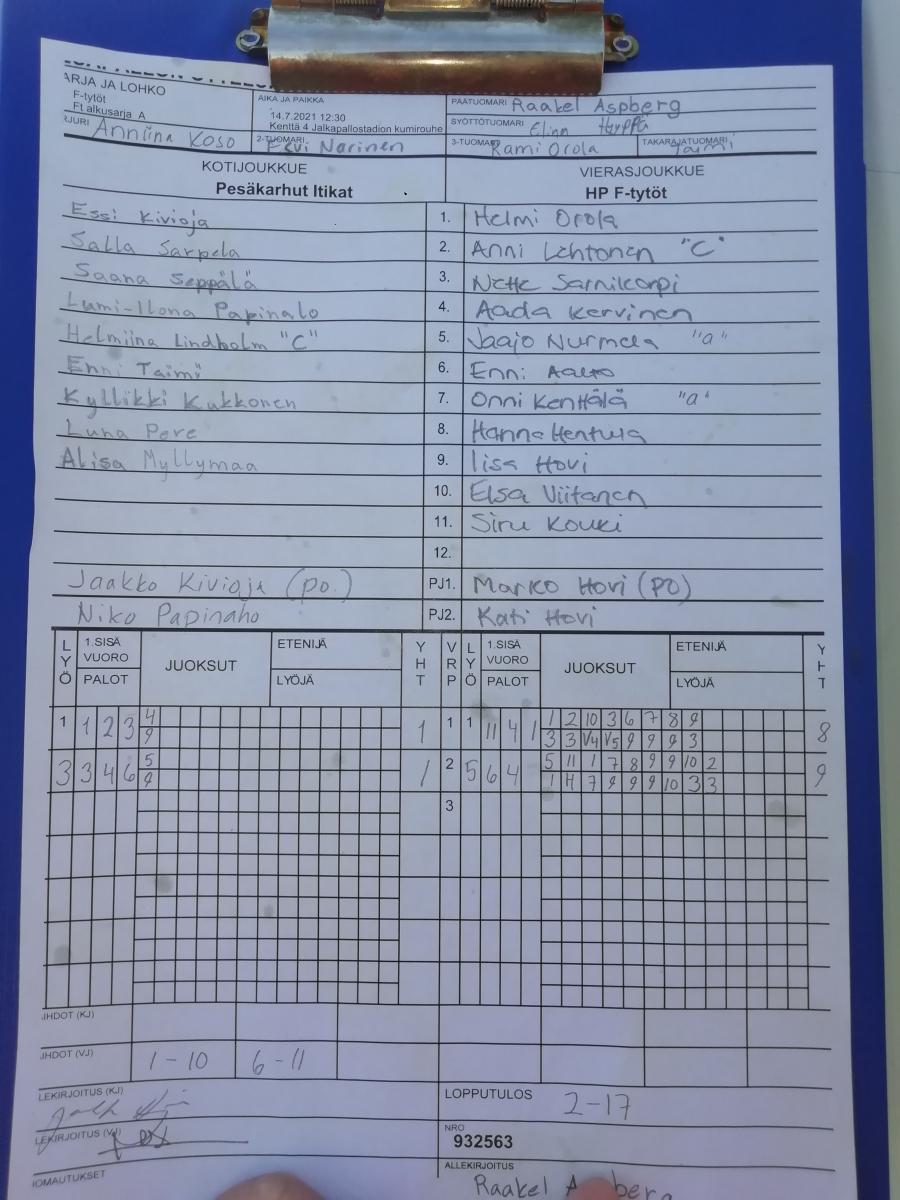 ARJA JA LOHKO
F-tytöt
Ft alkusarja A
AIKA JA PAIKKA
14.7.2021 12:30
Kenttä 4 Jalkapallostadion kumirouhe
PÄÄTUOMARI Raakel Aspberg
SYÖTTÖTUOMARI Elina
JURI Anniina Koso
2-TUOMARI Eevi Narinen
3-TUOMARI Rami Orola
TAKARAJATUOMARI Taimi
KOTIJOUKKUE
Pesäkarhut Itikat
VIERASJOUKKUE
HP F-tytöt
Essi Kivioja 1. Helmi Orola
Salla Sarpela 2. Anni Lehtonen "C"
Saana Seppälä 3. Nette Sarnikorpi
Lumi-Ilona Papinaho 4. Aada Kervinen
Helmiina Lindholm "C" 5. Jaajo Nurmela "a"
Enni Taimi 6. Enni Aalto
Kyllikki Kukkonen 7. Onni Kenttälä "a"
Luna Pere 8. Hanna Hentula
Alisa Myllymaa 9. Iisa Hovi
10. Elsa Viitanen
11. Siru Kouki
12.
Jaakko Kivioja (po.) PJ1. Marko Hovi (PO)
Niko Papinaho PJ2. Kati Hovi
LYÖ 1.SISÄ VUORO PALOT JUOKSUT ETENIJÄ LYÖJÄ YHT VRP LYÖ 1.SISÄ VUORO PALOT JUOKSUT ETENIJÄ LYÖJÄ YHT
1 1 2 3 4 1 1 1 11 4 1 1 2 10 3 6 7 8 9 8
9 3 3 V4 V5 9 9 9 3
3 3 4 6 5 1 2 5 6 4 5 11 1 7 8 9 9 10 2 9
9 1 4 7 9 9 9 10 3 3
3
JHDOT (KJ)
JHDOT (VJ) 1-10 6-11
LEKIRJOITUS (KJ)
LOPPUTULOS 2-17
LEKIRJOITUS (VJ)
NRO
932563
IOMAUTUKSET
ALLEKIRJOITUS
Raakel Aspberg